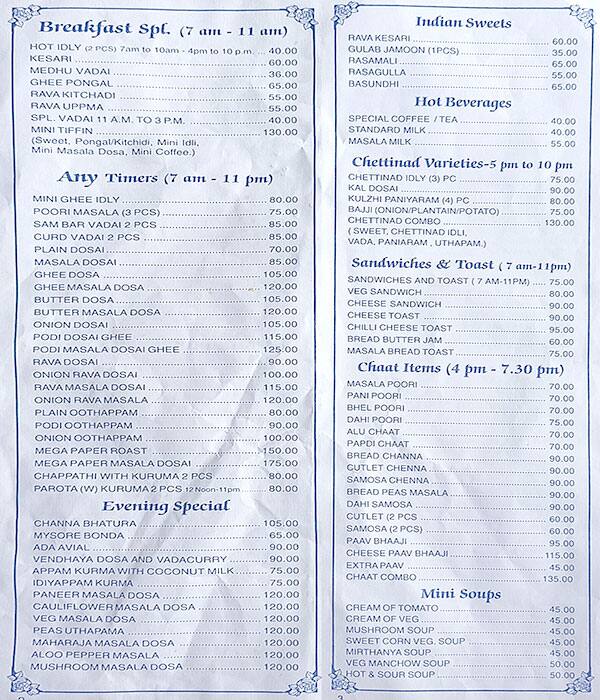 Breakfast Spl. (7 am - 11 am)
HOT IDLY (2 PCS) 7am to 10am - 4pm to 10 p.m. ... 40.00
KESARI 60.00
MEDHU VADAI 36.00
GHEE PONGAL 65.00
RAVA KITCHADI 55.00
RAVA UPPMA 55.00
SPL. VADAI 11 A.M. TO 3 P.M. 40.00
MINI TIFFIN 130.00
(Sweet, Pongal/Kitchidi, Mini Idli,
Mini Masala Dosa, Mini Coffee.)
Any Timers (7 am - 11 pm)
MINI GHEE IDLY 80.00
POORI MASALA (3 PCS) 75.00
SAM BAR VADAI 2 PCS 85.00
CURD VADAI 2 PCS 85.00
PLAIN DOSAI 70.00
MASALA DOSAI 85.00
GHEE DOSA 105.00
GHEE MASALA DOSA 120.00
BUTTER DOSA 105.00
BUTTER MASALA DOSA 120.00
ONION DOSAI 105.00
PODI DOSAI GHEE 115.00
PODI MASALA DOSAI GHEE 125.00
RAVA DOSAI 90.00
ONION RAVA DOSAI 100.00
RAVA MASALA DOSAI 115.00
ONION RAVA MASALA 120.00
PLAIN OOTHAPPAM 80.00
PODI OOTHAPPAM 90.00
ONION OOTHAPPAM 100.00
MEGA PAPER ROAST 150.00
MEGA PAPER MASALA DOSAI 175.00
CHAPPATHI WITH KURUMA 2 PCS 80.00
PAROTA (W) KURUMA 2 PCS 12 Noon-11pm 80.00
Evening Special
CHANNA BHATURA 105.00
MYSORE BONDA 65.00
ADA AVIAL 90.00
VENDHAYA DOSA AND VADACURRY 90.00
APPAM KURMA WITH COCONUT MILK 75.00
IDIYAPPAM KURMA 75.00
PANEER MASALA DOSA 120.00
CAULIFLOWER MASALA DOSA 120.00
VEG MASALA DOSA 120.00
PEAS UTHAPAMA 120.00
MAHARAJA MASALA DOSA 120.00
ALOO PEPPER MASALA 120.00
MUSHROOM MASALA DOSA 120.00
Indian Sweets
RAVA KESARI 60.00
GULAB JAMOON (1PCS) 35.00
RASAMALI 65.00
RASAGULLA 55.00
BASUNDHI 65.00
Hot Beverages
SPECIAL COFFEE / TEA 40.00
STANDARD MILK 40.00
MASALA MILK 55.00
Chettinad Varieties-5 pm to 10 pm
CHETTINAD IDLY (3) PC 75.00
KAL DOSAI 90.00
KULZHI PANIYARAM (4) PC 80.00
BAJJI (ONION/PLANTAIN/POTATO) 75.00
CHETTINAD COMBO 130.00
( SWEET, CHETTINAD IDLI,
VADA, PANIARAM , UTHAPAM.)
Sandwiches & Toast ( 7 am-11pm)
SANDWICHES AND TOAST ( 7 AM-11PM) 75.00
VEG SANDWICH 80.00
CHEESE SANDWICH 90.00
CHEESE TOAST 90.00
CHILLI CHEESE TOAST 95.00
BREAD BUTTER JAM 60.00
MASALA BREAD TOAST 75.00
Chaat Items (4 pm - 7.30 pm)
MASALA POORI 70.00
PANI POORI 70.00
BHEL POORI 70.00
DAHI POORI 75.00
ALU CHAAT 70.00
PAPDI CHAAT 70.00
BREAD CHANNA 90.00
CUTLET CHENNA 90.00
SAMOSA CHENNA 90.00
BREAD PEAS MASALA 90.00
DAHI SAMOSA 90.00
CUTLET (2 PCS 60.00
SAMOSA (2 PCS) 60.00
PAAV BHAAJI 95.00
CHEESE PAAV BHAAJI 115.00
EXTRA PAAV 45.00
CHAAT COMBO 135.00
Mini Soups
CREAM OF TOMATO 45.00
CREAM OF VEG 45.00
MUSHROOM SOUP 45.00
SWEET CORN VEG. SOUP 45.00
MIRTHANYA SOUP 45.00
VEG MANCHOW SOUP 50.00
HOT & SOUR SOUP 50.00